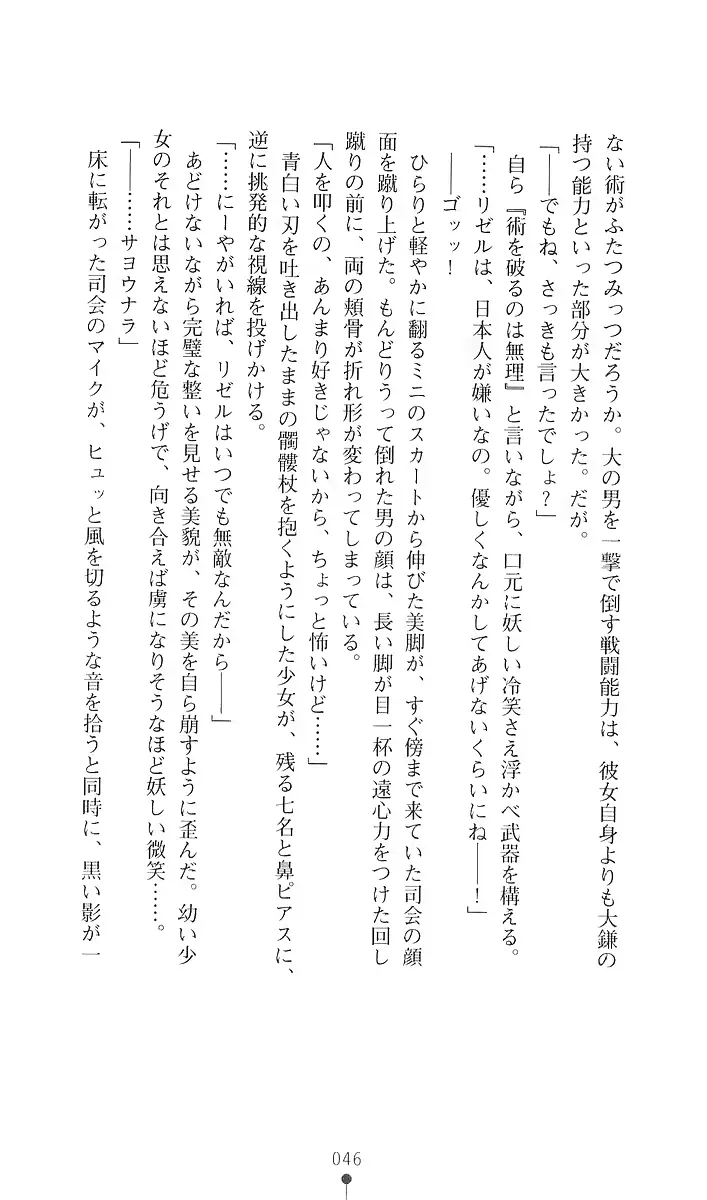 ない術がふたつみっつだろうか。大の男を一撃で倒す戦闘能力は、彼女自身よりも大鎌の
持つ能力といった部分が大きかった。だが。
「――でもね、さっきも言ったでしょ？」
自ら『術を破るのは無理』と言いながら、口元に妖しい冷笑さえ浮かべ武器を構える。
「……リゼルは、日本人が嫌いなの。優しくなんかしてあげないくらいにね――！」
――ゴッッ！
ひらりと軽やかに翻るミニのスカートから伸びた美脚が、すぐ傍まで来ていた司会の顔
面を蹴り上げた。もんどりうって倒れた男の顔は、長い脚が目一杯の遠心力をつけた回し
蹴りの前に、両の頬骨が折れ形が変わってしまっている。
「人を叩くの、あんまり好きじゃないから、ちょっと怖いけど……」
青白い刃を吐き出したままの髑髏杖を抱くようにした少女が、残る七名と鼻ピアスに、
逆に挑発的な視線を投げかける。
「……にーやがいれば、リゼルはいつでも無敵なんだから――」
あどけないながら完璧な整いを見せる美貌が、その美を自ら崩すように歪んだ。幼い少
女のそれとは思えないほど危うげで、向き合えば虜になりそうなほど妖しい微笑……。
「――……サヨウナラ」
床に転がった司会のマイクが、ヒュッと風を切るような音を拾うと同時に、黒い影が一
046